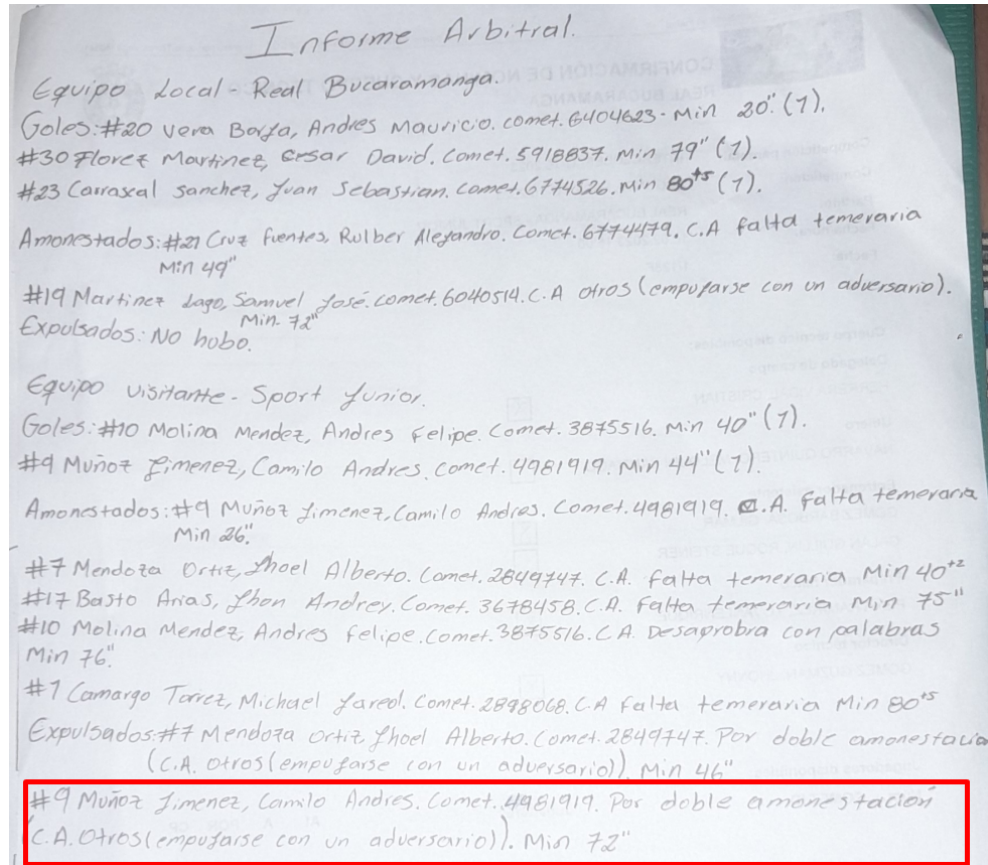 Informe Arbitral.
Equipo Local - Real Bucaramanga.
Goles: #20 Vera Borja, Andres Mauricio. comet. 6404623 - Min 20". (1).
#30 Florez Martinez, Cesar David. Comet. 5918837. Min 79" (1).
#23 Carrascal Sanchez, Juan Sebastian. Comet. 6774526. Min 80+5 (1).
Amonestados: #21 Cruz fuentes, Rulber Alejandro. Comet. 6774479. C.A falta temeraria
Min 49"
#19 Martinez Lago, Samuel José. comet. 6040514. C.A Otros (empujarse con un adversario).
Min. 72"
Expulsados: No hubo.
Equipo visitante - Sport Junior.
Goles: #10 Molina Mendez, Andres Felipe. Comet. 3875516. Min 40" (1).
#9 Muñoz Jimenez, Camilo Andres. Comet. 4981919. Min 44" (1).
Amonestados: #9 Muñoz Jimenez, Camilo Andres. Comet. 4981919. C.A. Falta temeraria
Min 26".
#7 Mendoza Ortiz, Jhoel Alberto. Comet. 2849747. C.A. falta temeraria Min 40+2
#17 Basto Arias, Jhon Andrey. Comet. 3678458. C.A. Falta temeraria Min 75"
#10 Molina Mendez, Andres Felipe. Comet. 3875516. C.A. Desaprobra con palabras
Min 76".
#1 Camargo Torrez, Michael Jareol. Comet. 2898068. C.A falta temeraria Min 80+5
Expulsados: #7 Mendoza Ortiz, Jhoel Alberto. Comet. 2849747. Por doble amonestacio
(C.A. Otros (empujarse con un adversario)). Min 46"
#9 Muñoz Jimenez, Camilo Andres. Comet. 4981919. Por doble amonestación
(C.A. Otros (empujarse con un adversario)). Min 72"